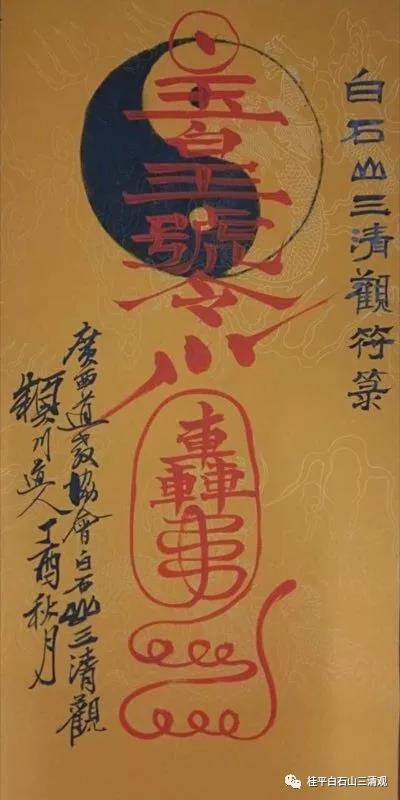 白石山三清觀符箓
玉皇號令
轟
廣西道教協會白石山三清觀
頴川道人丁酉秋月
桂平白石山三清观